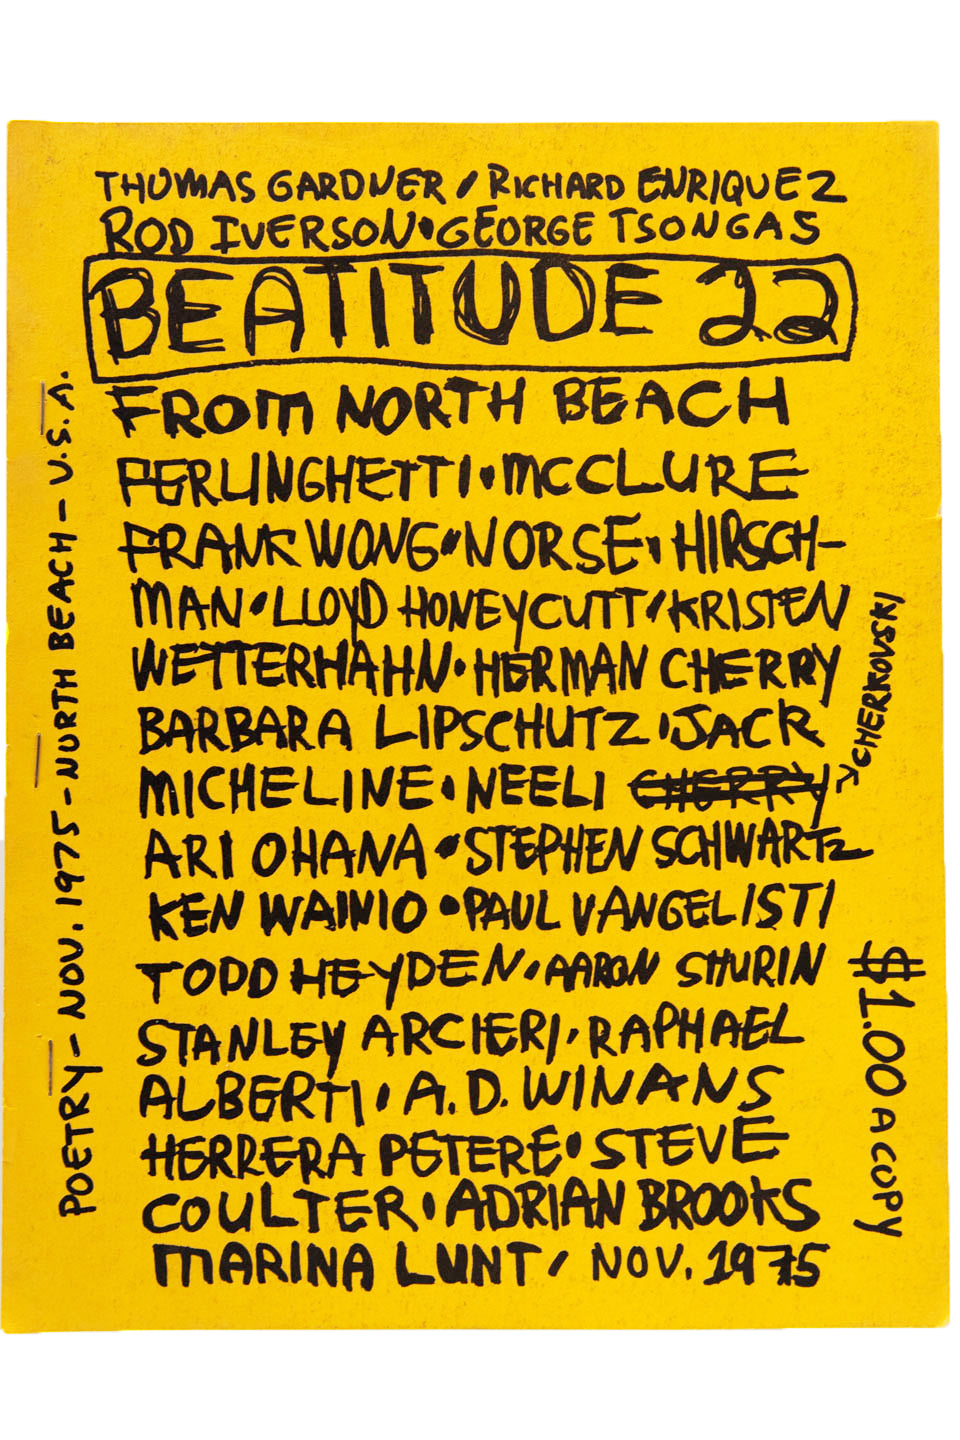 THOMAS GARDNER / RICHARD ENRIQUEZ
ROD IVERSON • GEORGE TSONGAS
BEATITUDE 22
FROM NORTH BEACH
FERLINGHETTI • MCCLURE
FRANK WONG • NORSE • HIRSCH-
MAN • LLOYD HONEYCUTT / KRISTEN
WETTERHAHN • HERMAN CHERRY
BARBARA LIPSCHUTZ • JACK
MICHELINE • NEELI CHERRY
CHERKOVSKI
ARI OHANA • STEPHEN SCHWARTZ
KEN WAINIO • PAUL VANGELISTI
TODD HEYDEN • AARON SHURIN
STANLEY ARCIERI, RAPHAEL
ALBERTI • A.D. WINANS
HERRERA PETERE • STEVE
COULTER • ADRIAN BROOKS
MARINA LUNT / NOV. 1975
POETRY - NOV. 1975 - NORTH BEACH - U.S.A.
$1.00 A COPY